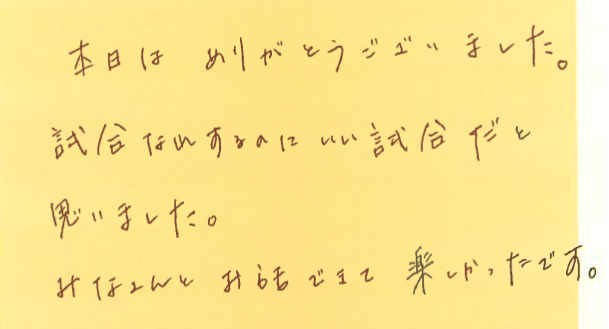 本日は ありがとうございました。
試合なれするのにいい試合だと
思いました。
みなさんとお話できて楽しかったです。